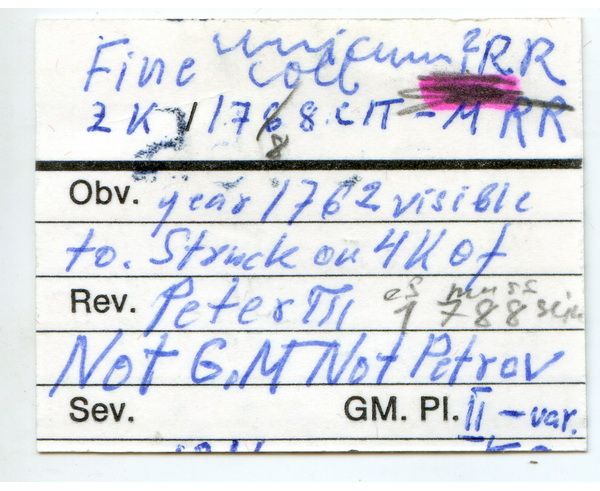 Fine unicum ? RR
coll
2 K 1768 СПМ RR
8
Obv. year 1762 visible
to. Struck on 4K of
Rev. Peter III es muss
1788 sein
Not G.M Not Petrov
Sev. GM. Pl. II - var.